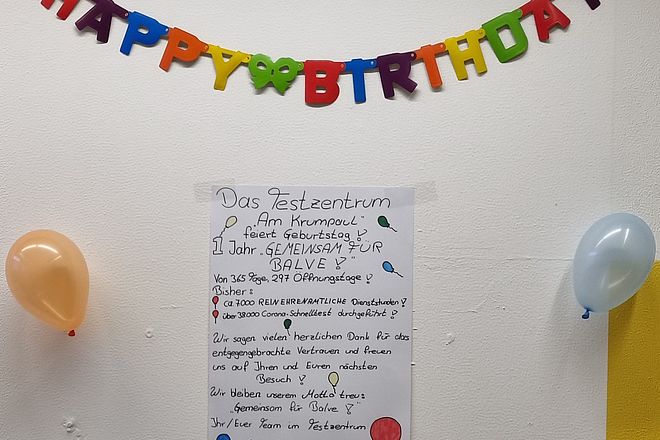 HAPPY BIRTHDAY
Das Testzentrum
„Am Krumpaul“
feiert Geburtstag!
1 Jahr „GEMEINSAM FÜR
BALVE!“
Von 365 Tage, 297 Öffnungstage!
Bisher:
ca. 7000 REIN EHRENAMTLICHE Dienststunden!
über 38000 Corona-Schnelltest durchgeführt!
Wir sagen vielen herzlichen Dank für das
entgegengebrachte Vertrauen und freuen
uns auf Ihren und Euren nächsten
Besuch!
Wir bleiben unserem Motto treu:
„Gemeinsam für Balve!“
Ihr/Euer Team im Testzentrum